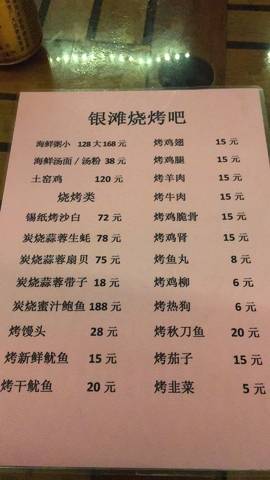 银滩烧烤吧
海鲜粥小 128 大 168 元
海鲜汤面 / 汤粉 38 元
土窑鸡 120 元
烧烤类
锡纸烤沙白 72 元
炭烧蒜蓉生蚝 78 元
炭烧蒜蓉扇贝 75 元
炭烧蒜蓉带子 18 元
炭烧蜜汁鲍鱼 188 元
烤馒头 28 元
烤新鲜鱿鱼 15 元
烤干鱿鱼 20 元
烤鸡翅 15 元
烤鸡腿 15 元
烤羊肉 15 元
烤牛肉 15 元
烤鸡脆骨 15 元
烤鸡肾 15 元
烤鱼丸 8 元
烤鸡柳 6 元
烤热狗 6 元
烤秋刀鱼 20 元
烤茄子 15 元
烤韭菜 5 元